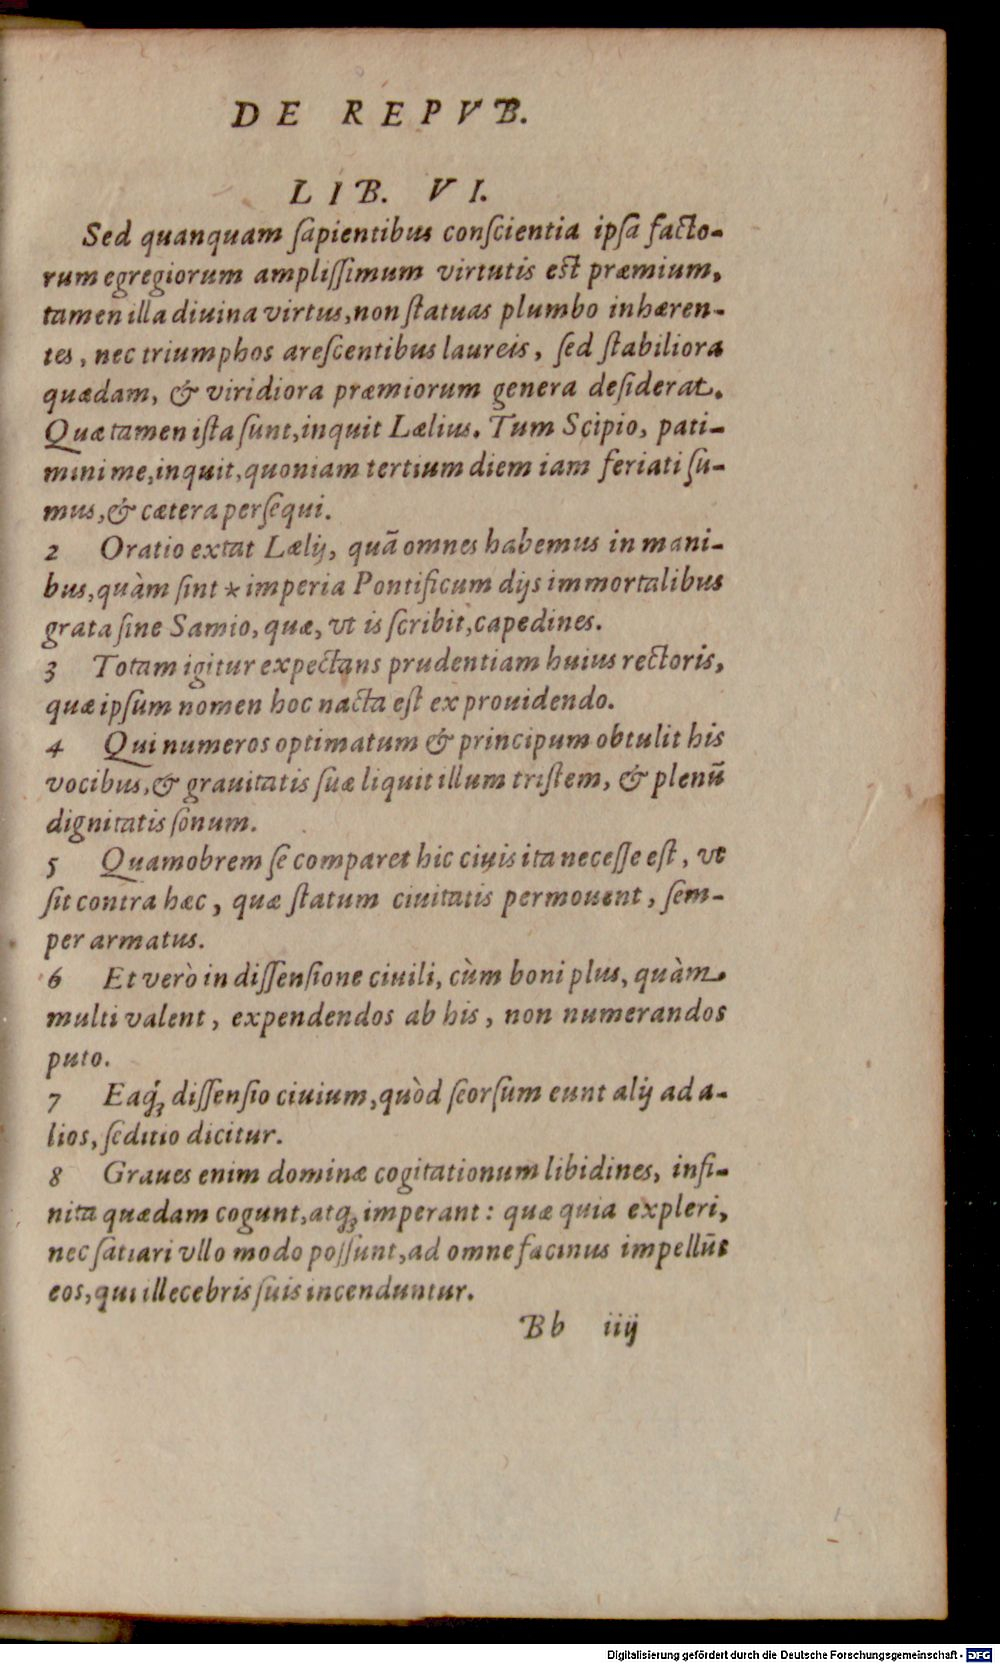 DE REPVB.
LIB. VI.
Sed quanquam ſapientibus conſcientia ipſa facto-
rum egregiorum ampliſſimum virtutis eſt præmium,
tamen illa diuina virtus, non ſtatuas plumbo inhæren-
tes, nec triumphos areſcentibus laureis, ſed ſtabiliora
quædam, & viridiora præmiorum genera deſiderat.
Quæ tamen iſta ſunt, inquit Lælius. Tum Scipio, pati-
mini me, inquit, quoniam tertium diem iam feriati ſu-
mus, & cætera perſequi.
2 Oratio extat Lælij, quā omnes habemus in mani-
bus, quàm ſint * imperia Pontificum dijs immortalibus
grata ſine Samio, quæ, vt is ſcribit, capedines.
3 Totam igitur expectans prudentiam huius rectoris,
quæ ipſum nomen hoc nacta eſt ex prouidendo.
4 Qui numeros optimatum & principum obtulit his
vocibus, & grauitatis ſuæ liquit illum triſtem, & plenū
dignitatis ſonum.
5 Quamobrem ſe comparet hic ciuis ita neceſſe eſt, vt
ſit contra hæc, quæ ſtatum ciuitatis permouent, ſem-
per armatus.
6 Et verò in diſſenſione ciuili, cùm boni plus, quàm
multi valent, expendendos ab his, non numerandos
puto.
7 Eaq́ꝫ diſſenſio ciuium, quòd ſeorſum eunt alij ad a-
lios, ſeditio dicitur.
8 Graues enim dominæ cogitationum libidines, infi-
nita quædam cogunt, atqꝫ imperant: quæ quia expleri,
nec ſatiari vllo modo poſſunt, ad omne facinus impellūt
eos, qui illecebris ſuis incenduntur.
Bb iiij
Digitalisierung gefördert durch die Deutsche Forschungsgemeinschaft - DFG